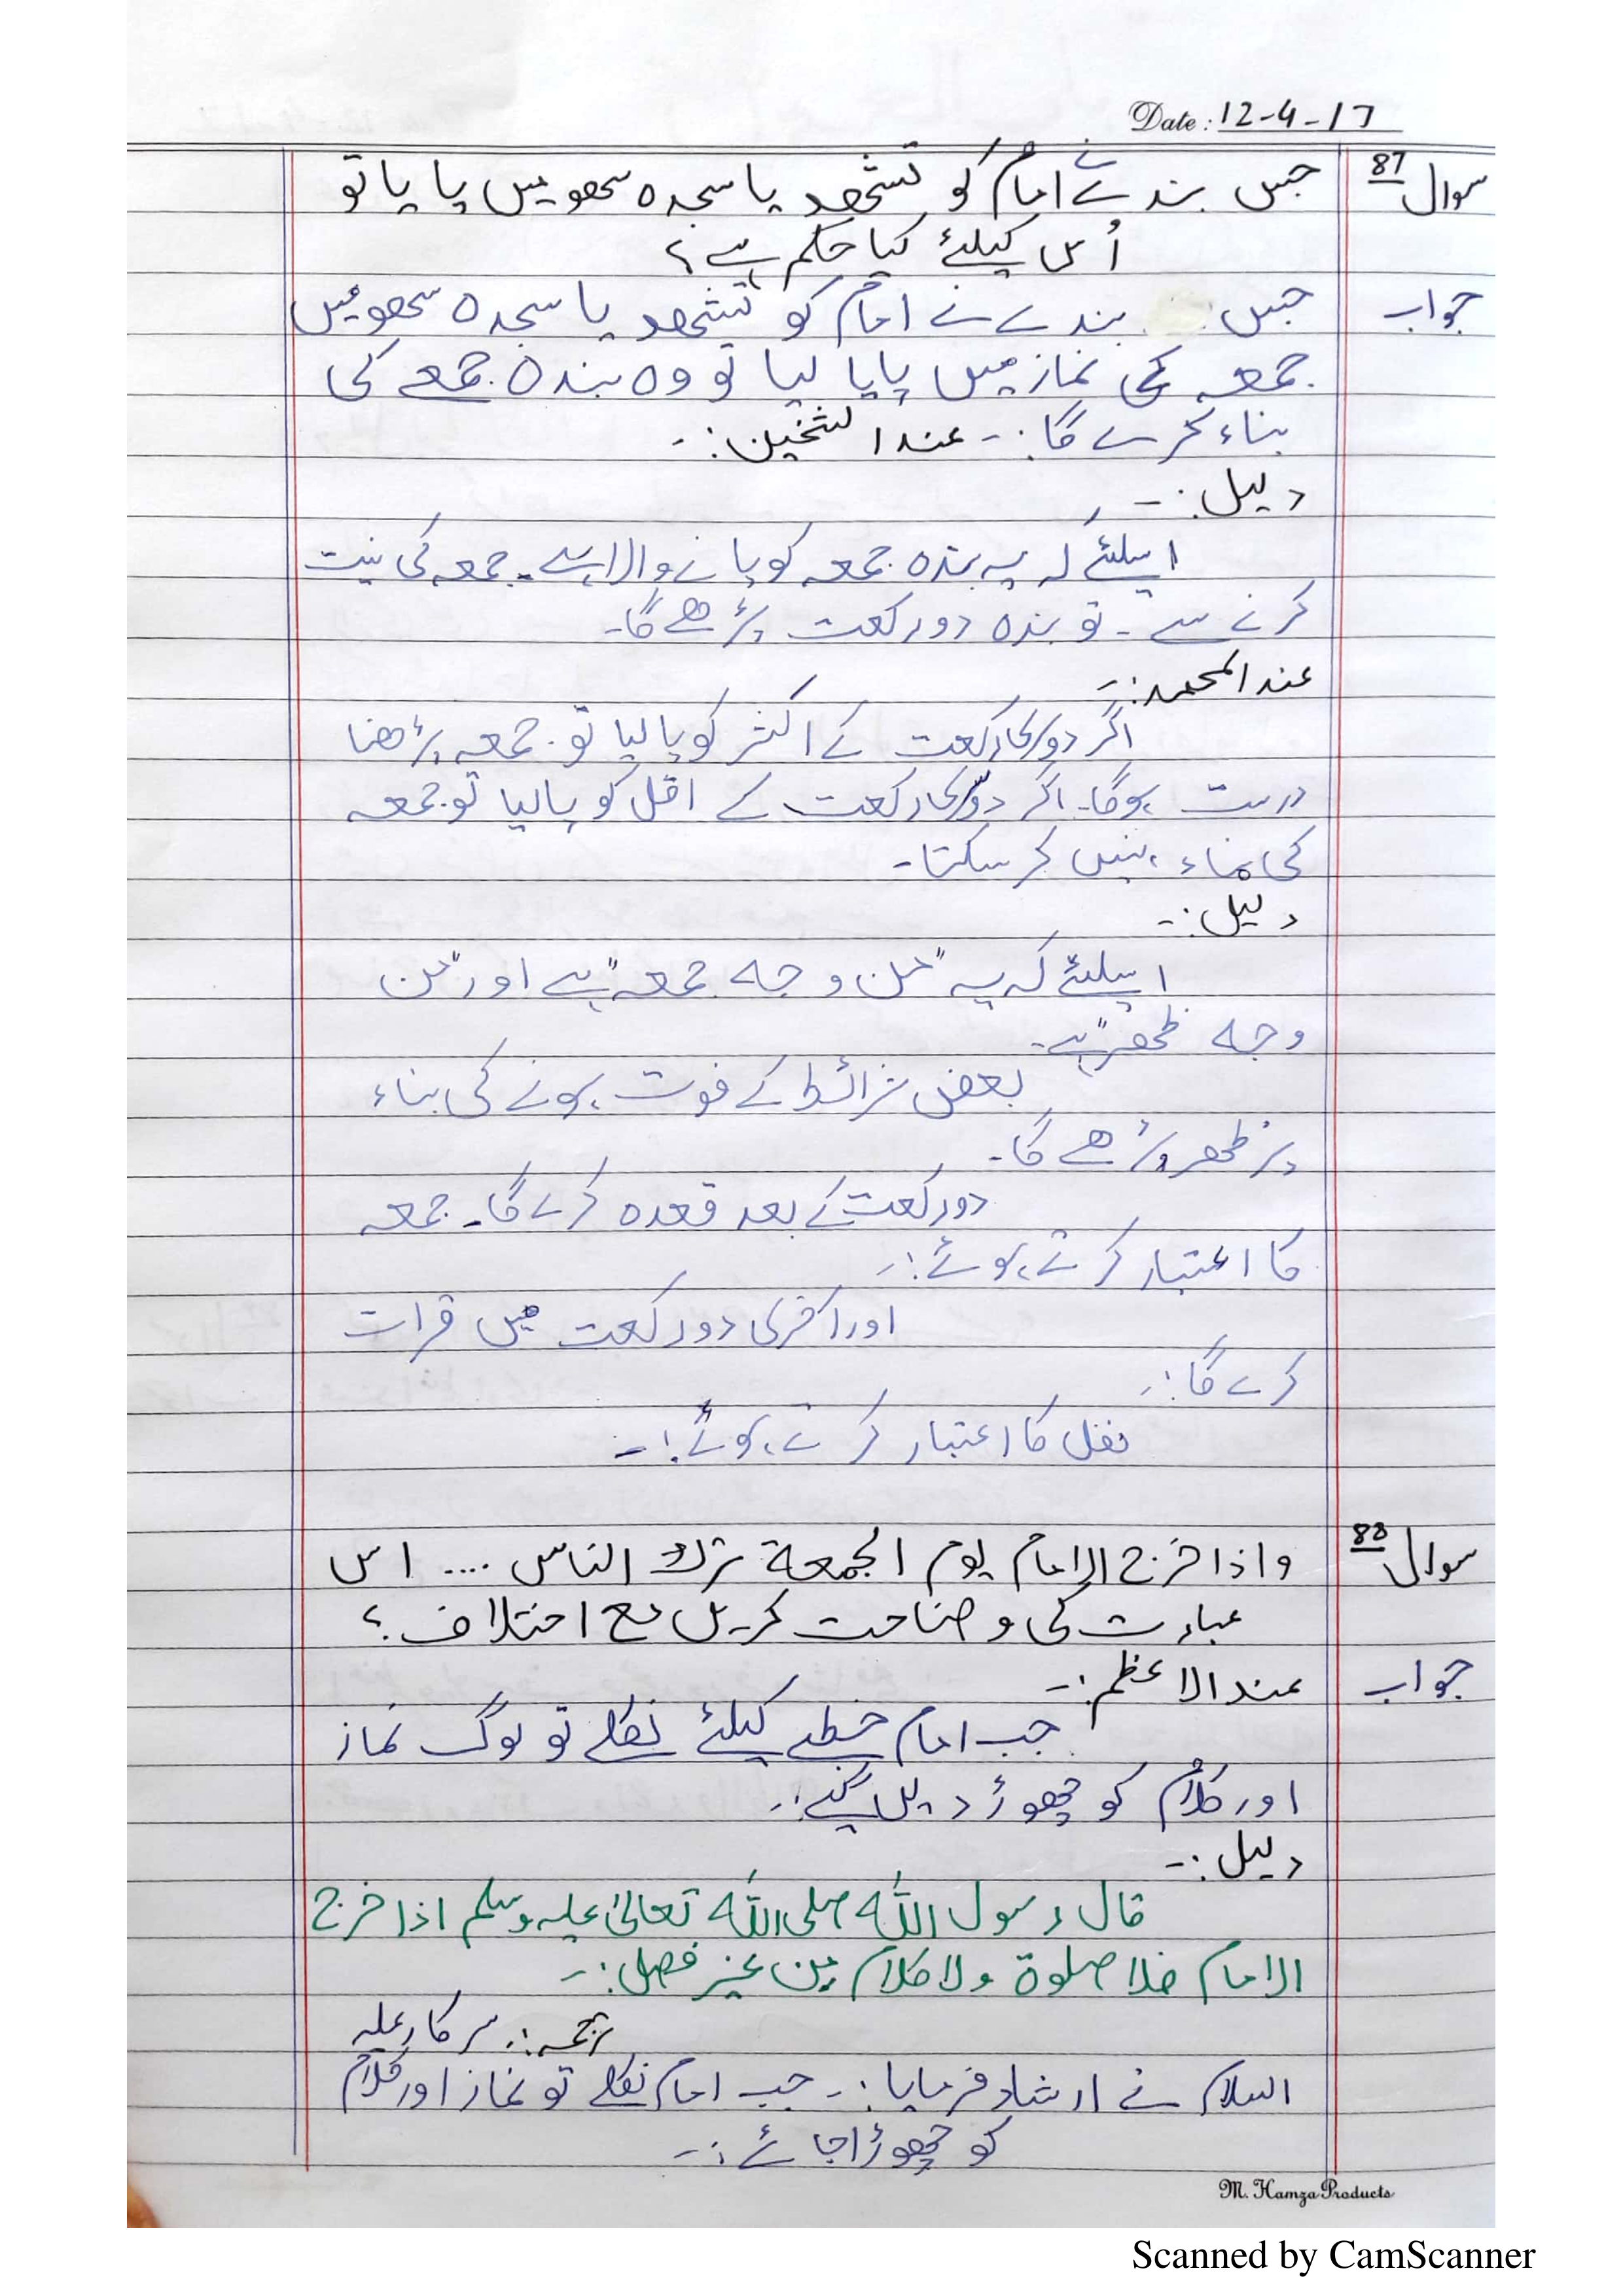 Date: 12-4-17
سوال 87 جس بندے نے امام کو تشھد یا سجدہ سھو میں پا یا تو
اُس کیلئے کیا حکم ہے؟
جواب جس بندے نے امام کو تشھد یا سجدہ سھو میں
جمعہ کی نماز میں پایا لیا تو وہ بندہ جمعے کی
بناء کرے گا:۔ عندالشخین:۔
دلیل:۔
اسلئے کہ یہ بندہ جمعہ کو پانے والا ہے۔ جمعہ کی نیت
کرنے سے۔ تو بندہ دو رکعت پڑھے گا۔
عندالمحمد:۔
اگر دوسری رکعت کے اکثر کو پا لیا تو جمعہ پڑھنا
درست ہوگا۔ اگر دوسری رکعت کے اقل کو پالیا تو جمعہ
کی بناء نہیں کر سکتا۔
دلیل:۔
اسلئے کہ یہ "من وجہ جمعہ" ہے اور "من
وجہ ظھر" ہے۔
بعض شرائط کے فوت ہونے کی بناء
پر ظھر پڑھے گا۔
دو رکعت کے بعد قعدہ کرے گا۔ جمعہ
کا اعتبار کرتے ہوئے:۔
اور آخری دو رکعت میں قرات
کرے گا:۔
نفل کا اعتبار کرتے ہوئے:۔
سوال 88 واذا خرج الامام یوم الجمعة ترک الناس .... اس
عبارت کی وضاحت کریں مع اختلاف؟
جواب عندالاعظم:۔
جب امام خطبے کیلئے نکلے تو لوگ نماز
اور کلام کو چھوڑ دیں گے:۔
دلیل:۔
قال رسول اللہ صلی اللہ تعالیٰ علیہ وسلم اذا خرج
الامام فلا صلوة ولا کلام من غیر فصل:۔
ترجمہ:۔ سرکار علیہ
السلام نے ارشاد فرمایا:۔ جب امام نکلے تو نماز اور کلام
کو چھوڑا جائے:۔
M. Hamza Products
Scanned by CamScanner